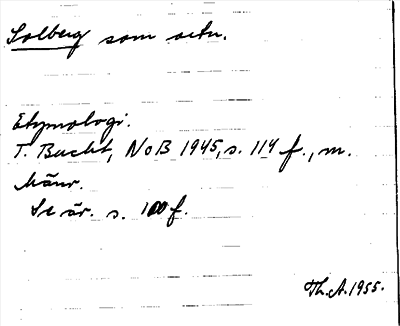 Solberg som ortn.
Etymologi.
T. Bucht, NoB 1945, s. 114 f., m.
hänv.
Se är. s. 100 f.
Th. A. 1955.